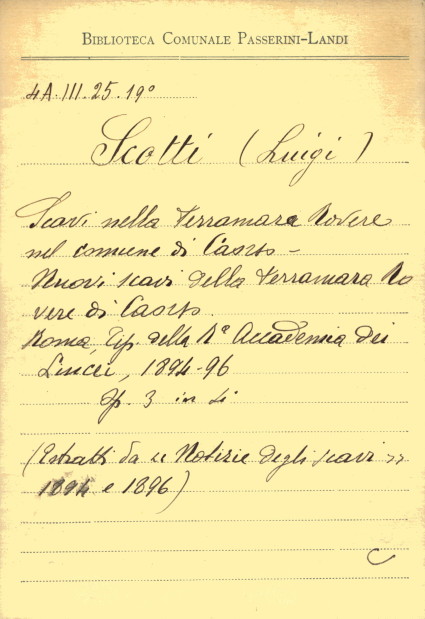 BIBLIOTECA COMUNALE PASSERINI-LANDI
4A.III.25.19°
Scotti (Luigi)
Scavi nella Terramara Rovere
nel comune di Caorso –
Nuovi scavi della Terramara Ro
vere di Caorso.
Roma, Tip. della R.ª Accademia dei
Lincei, 1894-96
Op. 3 in 4
(Estratti da « Notizie degli scavi »
1894 e 1896)
C